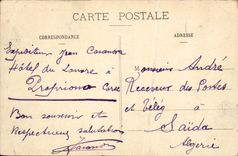 CARTE POSTALE
CORRESPONDANCE
ADRESSE
Expéditeur Jean Casanova
Hôtel du Louvre à
Propriano Corse
Bon souvenir et
Respectueuses salutations
Monsieur André
Receveur des Postes
et Télég à
Saïda
Algérie